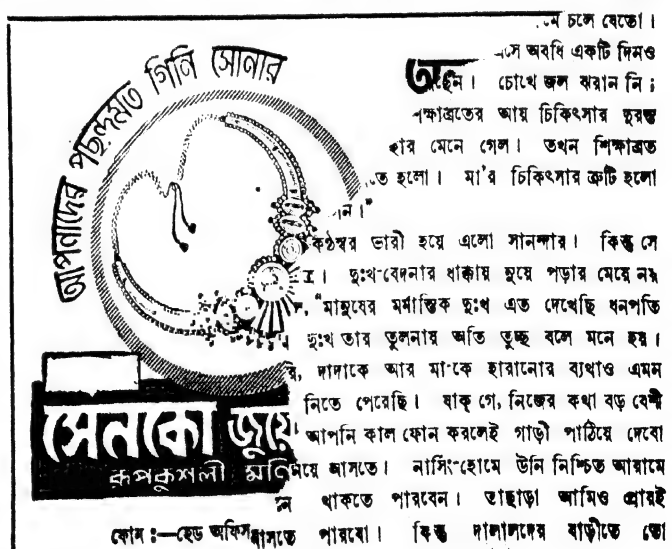 আপনাদের পছন্দমত গিনি সোনার
সেনকো জুয়ে
রূপকুশলী মনি
ফোন :—হেড অফিস
মে চলে যেতো।
এসে অবধি একটি দিনও
ছেন। চোখে জল ঝরান নি;
শিক্ষাব্রতের আয় চিকিৎসার দুরন্ত
হার মেনে গেল। তখন শিক্ষাব্রত
তে হলো। মা'র চিকিৎসার ত্রুটি হলো
কণ্ঠস্বর ভারী হয়ে এলো সানন্দার। কিন্তু সে
দুঃখ-বেদনার ধাক্কায় নুয়ে পড়ার মেয়ে নয়
"মানুষের মর্মান্তিক দুঃখ এত দেখেছি ধনপতি
দুঃখ তার তুলনায় অতি তুচ্ছ বলে মনে হয়।
দাদাকে আর মা-কে হারানোর ব্যথাও এমন
নিতে পেরেছি। যাক্ গে, নিজের কথা বড় বেশী
আপনি কাল ফোন করলেই গাড়ী পাঠিয়ে দেবো
নিয়ে আসতে। নার্সিং-হোমে উনি নিশ্চিত আরামে
থাকতে পারবেন। তাছাড়া আমিও প্রায়ই
আসতে পারবো। কিন্তু দালালদের বাড়ীতে তো